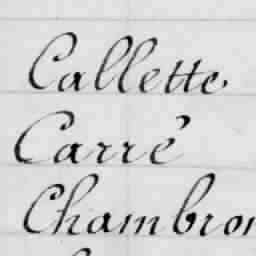 Callette
Carré
Chambron